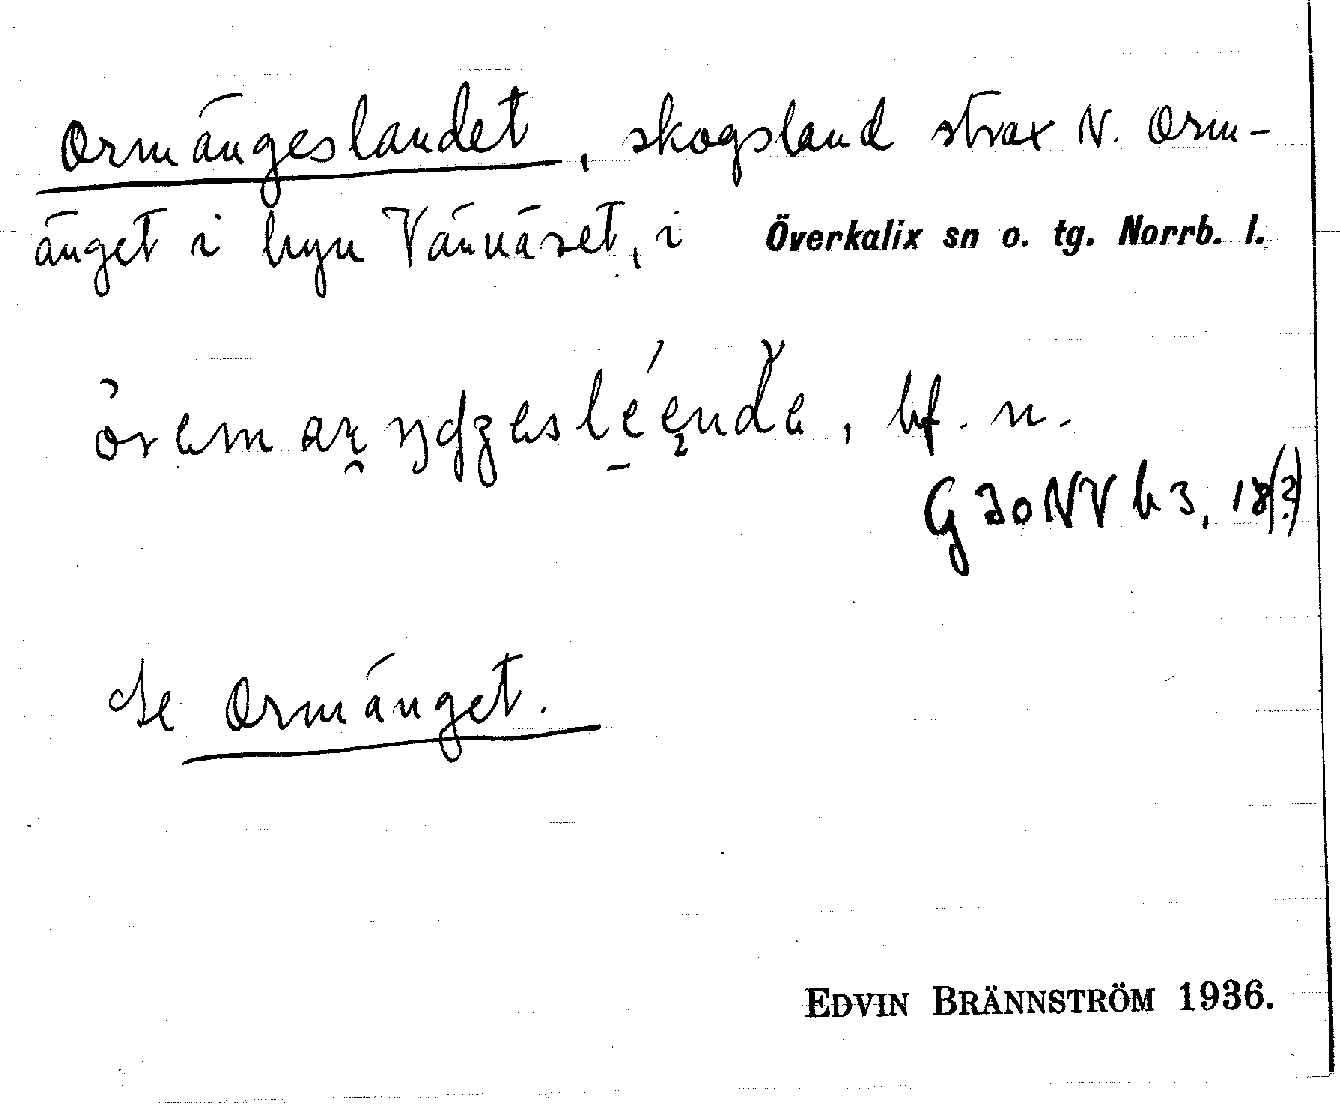 Ormängeslandet, skogsland strax N. Orm-
änget i byn Vännäset, i Överkalix sn o. tg. Norrb. l.
bf. n.
G 30 NV b 3, 18(?)
Se Ormänget.
EDVIN BRÄNNSTRÖM 1936.